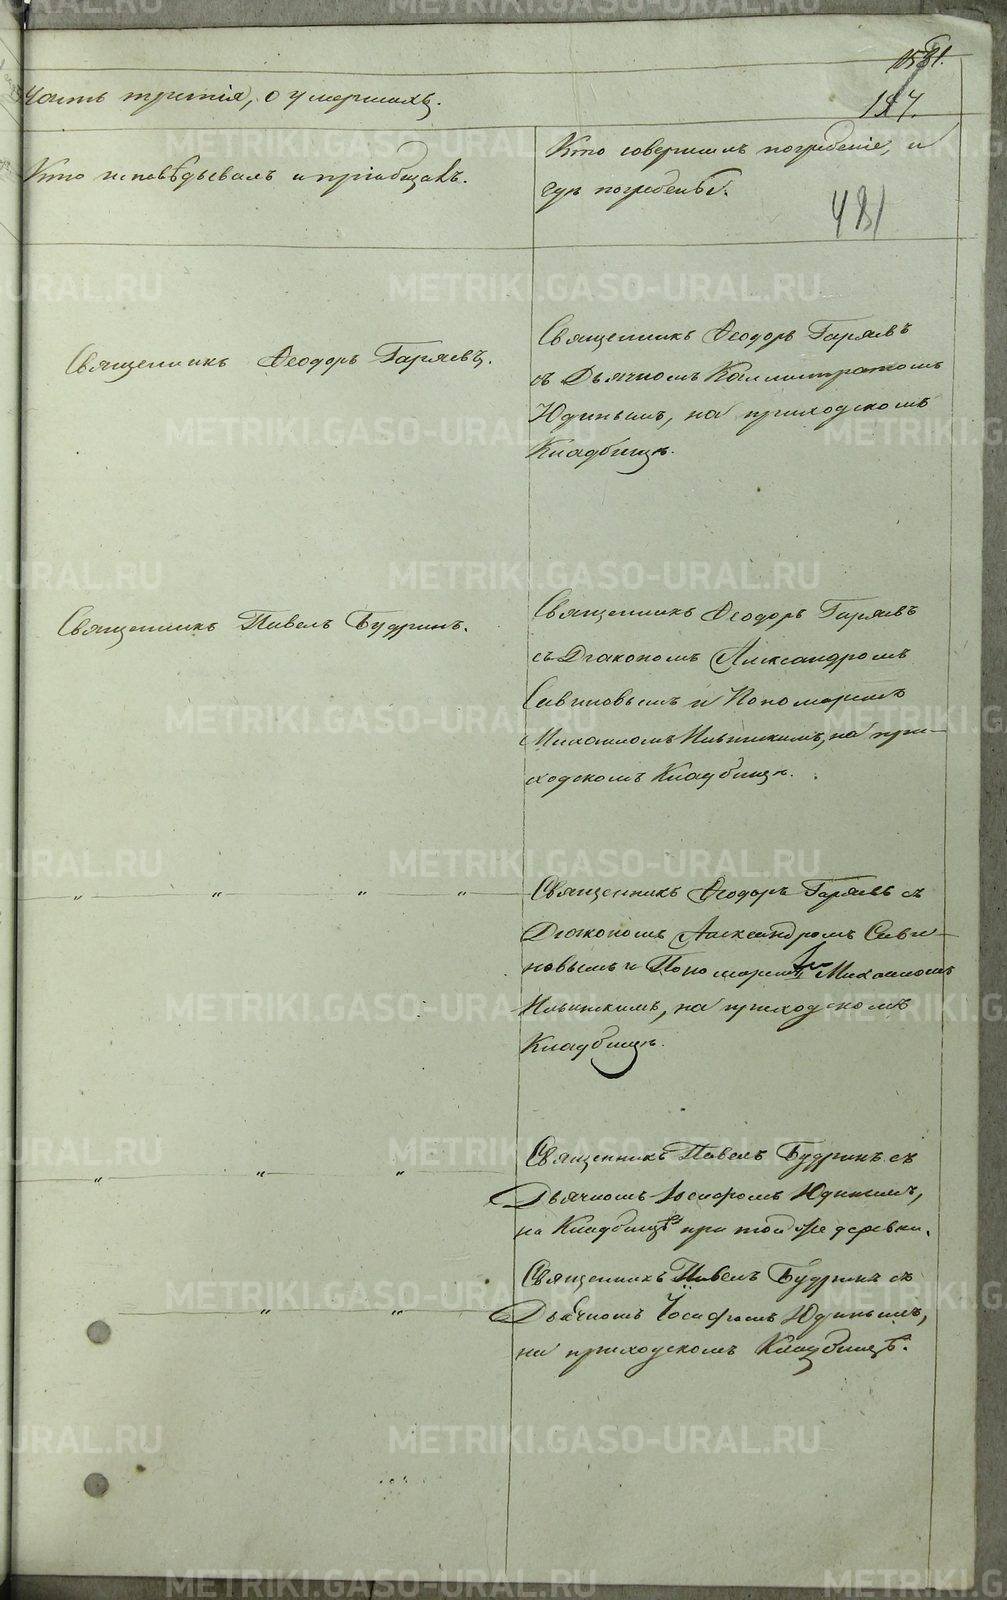 Часть третія, о умершихъ.
187.
Кто исповѣдывалъ и пріобщалъ.
Кто совершалъ погребеніе, и
гдѣ погребены.
481
Священникъ Ѳеодоръ Гаряевъ.
Священникъ Ѳеодоръ Гаряевъ
съ Дьячкомъ Каллистратомъ
Юдинымъ, на приходскомъ
Кладбищѣ.
Священникъ Павелъ Будринъ.
Священникъ Ѳеодоръ Гаряевъ
съ Діакономъ Александромъ
Савиновымъ и Пономаремъ
Михаиломъ Ильинскимъ, на при-
ходскомъ Кладбищѣ.
" " " "
Священникъ Ѳеодоръ Гаряевъ съ
Діакономъ Александромъ Сави-
новымъ и Пономаремъ Михаиломъ
Ильинскимъ, на приходскомъ
Кладбищѣ.
" " "
Священникъ Павелъ Будринъ съ
Дьячкомъ Іосифомъ Юдинымъ,
на Кладбищѣ при той же деревни.
" "
Священникъ Павелъ Будринъ съ
Дьячкомъ Іосифомъ Юдинымъ,
на приходскомъ Кладбищѣ.
METRIKI.GASO-URAL.RU